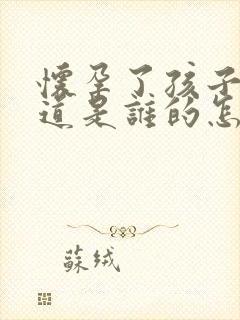 懷孕了孩子
道是誰的怎
蘇绒